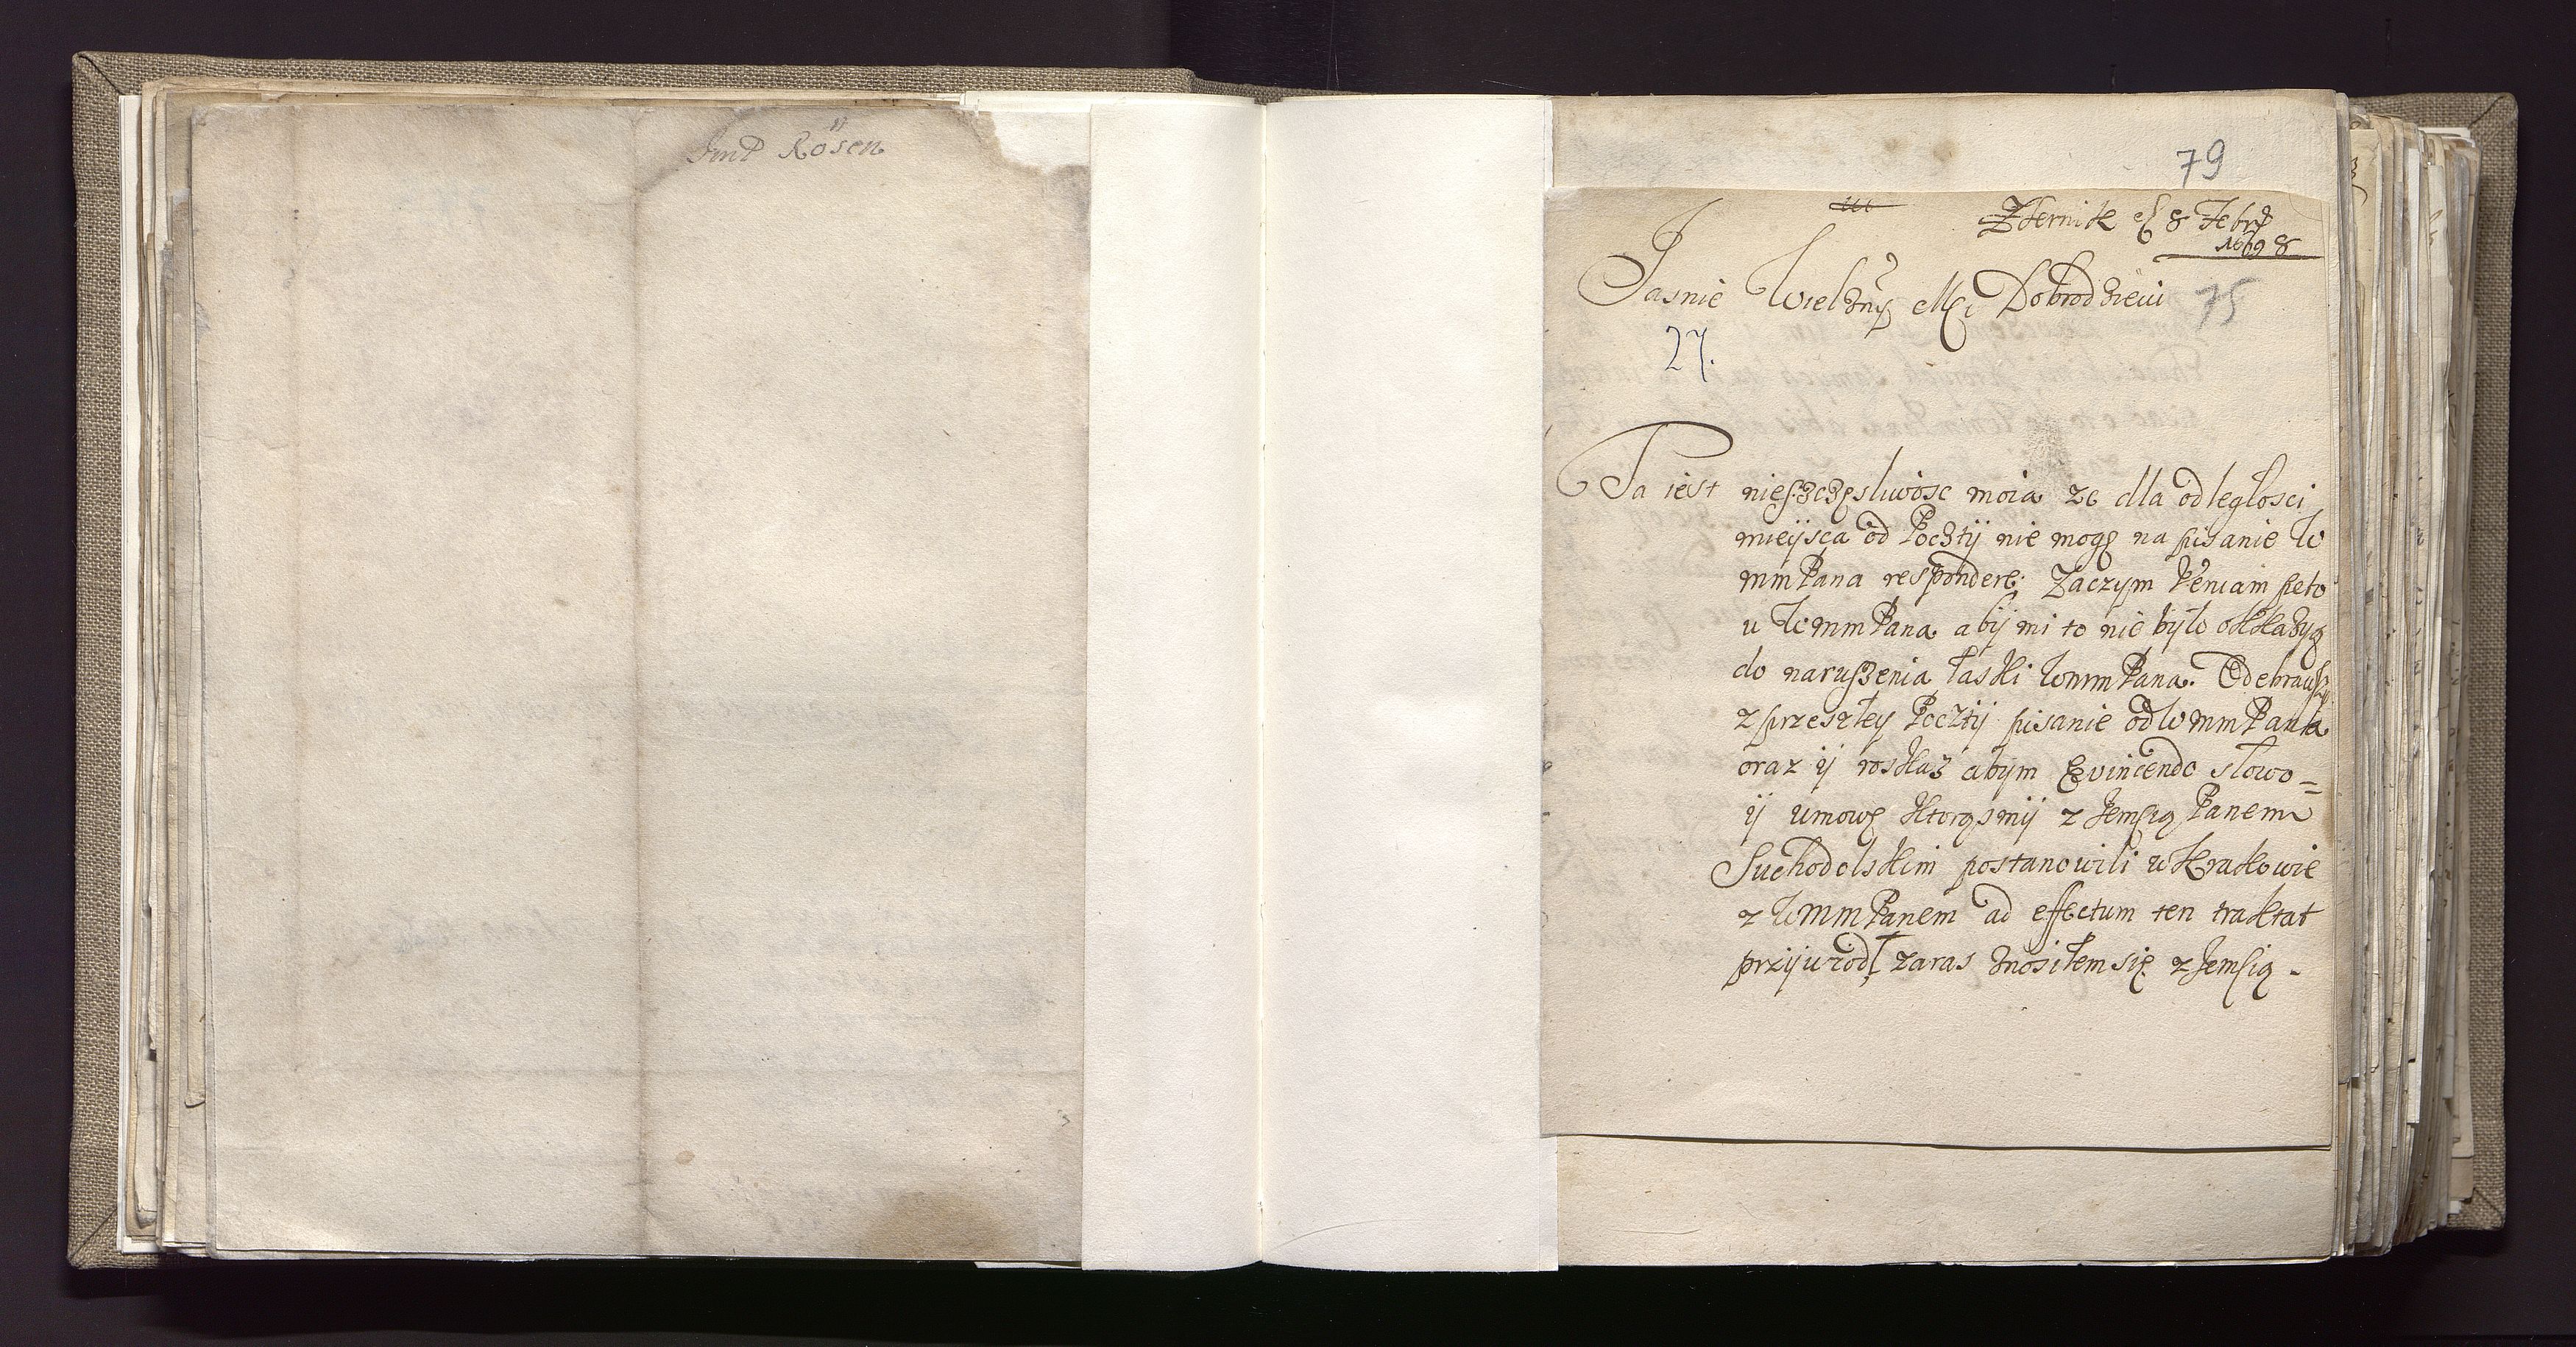 Jmp Rösen
79
Zdernik 8 Febr
1698
Jasnie Wielżny Mći Dobrodzieiu
75
27.
Ta iest nieszczęsliwosc moia ze dla odległosci
mieysca od Pocztÿ nie mogę na pisanie W
mmPana respondere; Zaczym Veniam peto
u WmmPana abÿ mi to nie bÿło okkazyą
do naruszenia łaski WmmPana. Odebrawszy
z przeszłey Pocztÿ pisanie od WmmPana
oraz ÿ roskaz abym Evincendo słowo=
ÿ umowę ktorąsmÿ z Jemścią Panem
Suchodolskim postanowili w Krakowie
z WmmPanem ad effectum ten traktat
przÿwiodł, zaras znosiłem się z Jemścią -